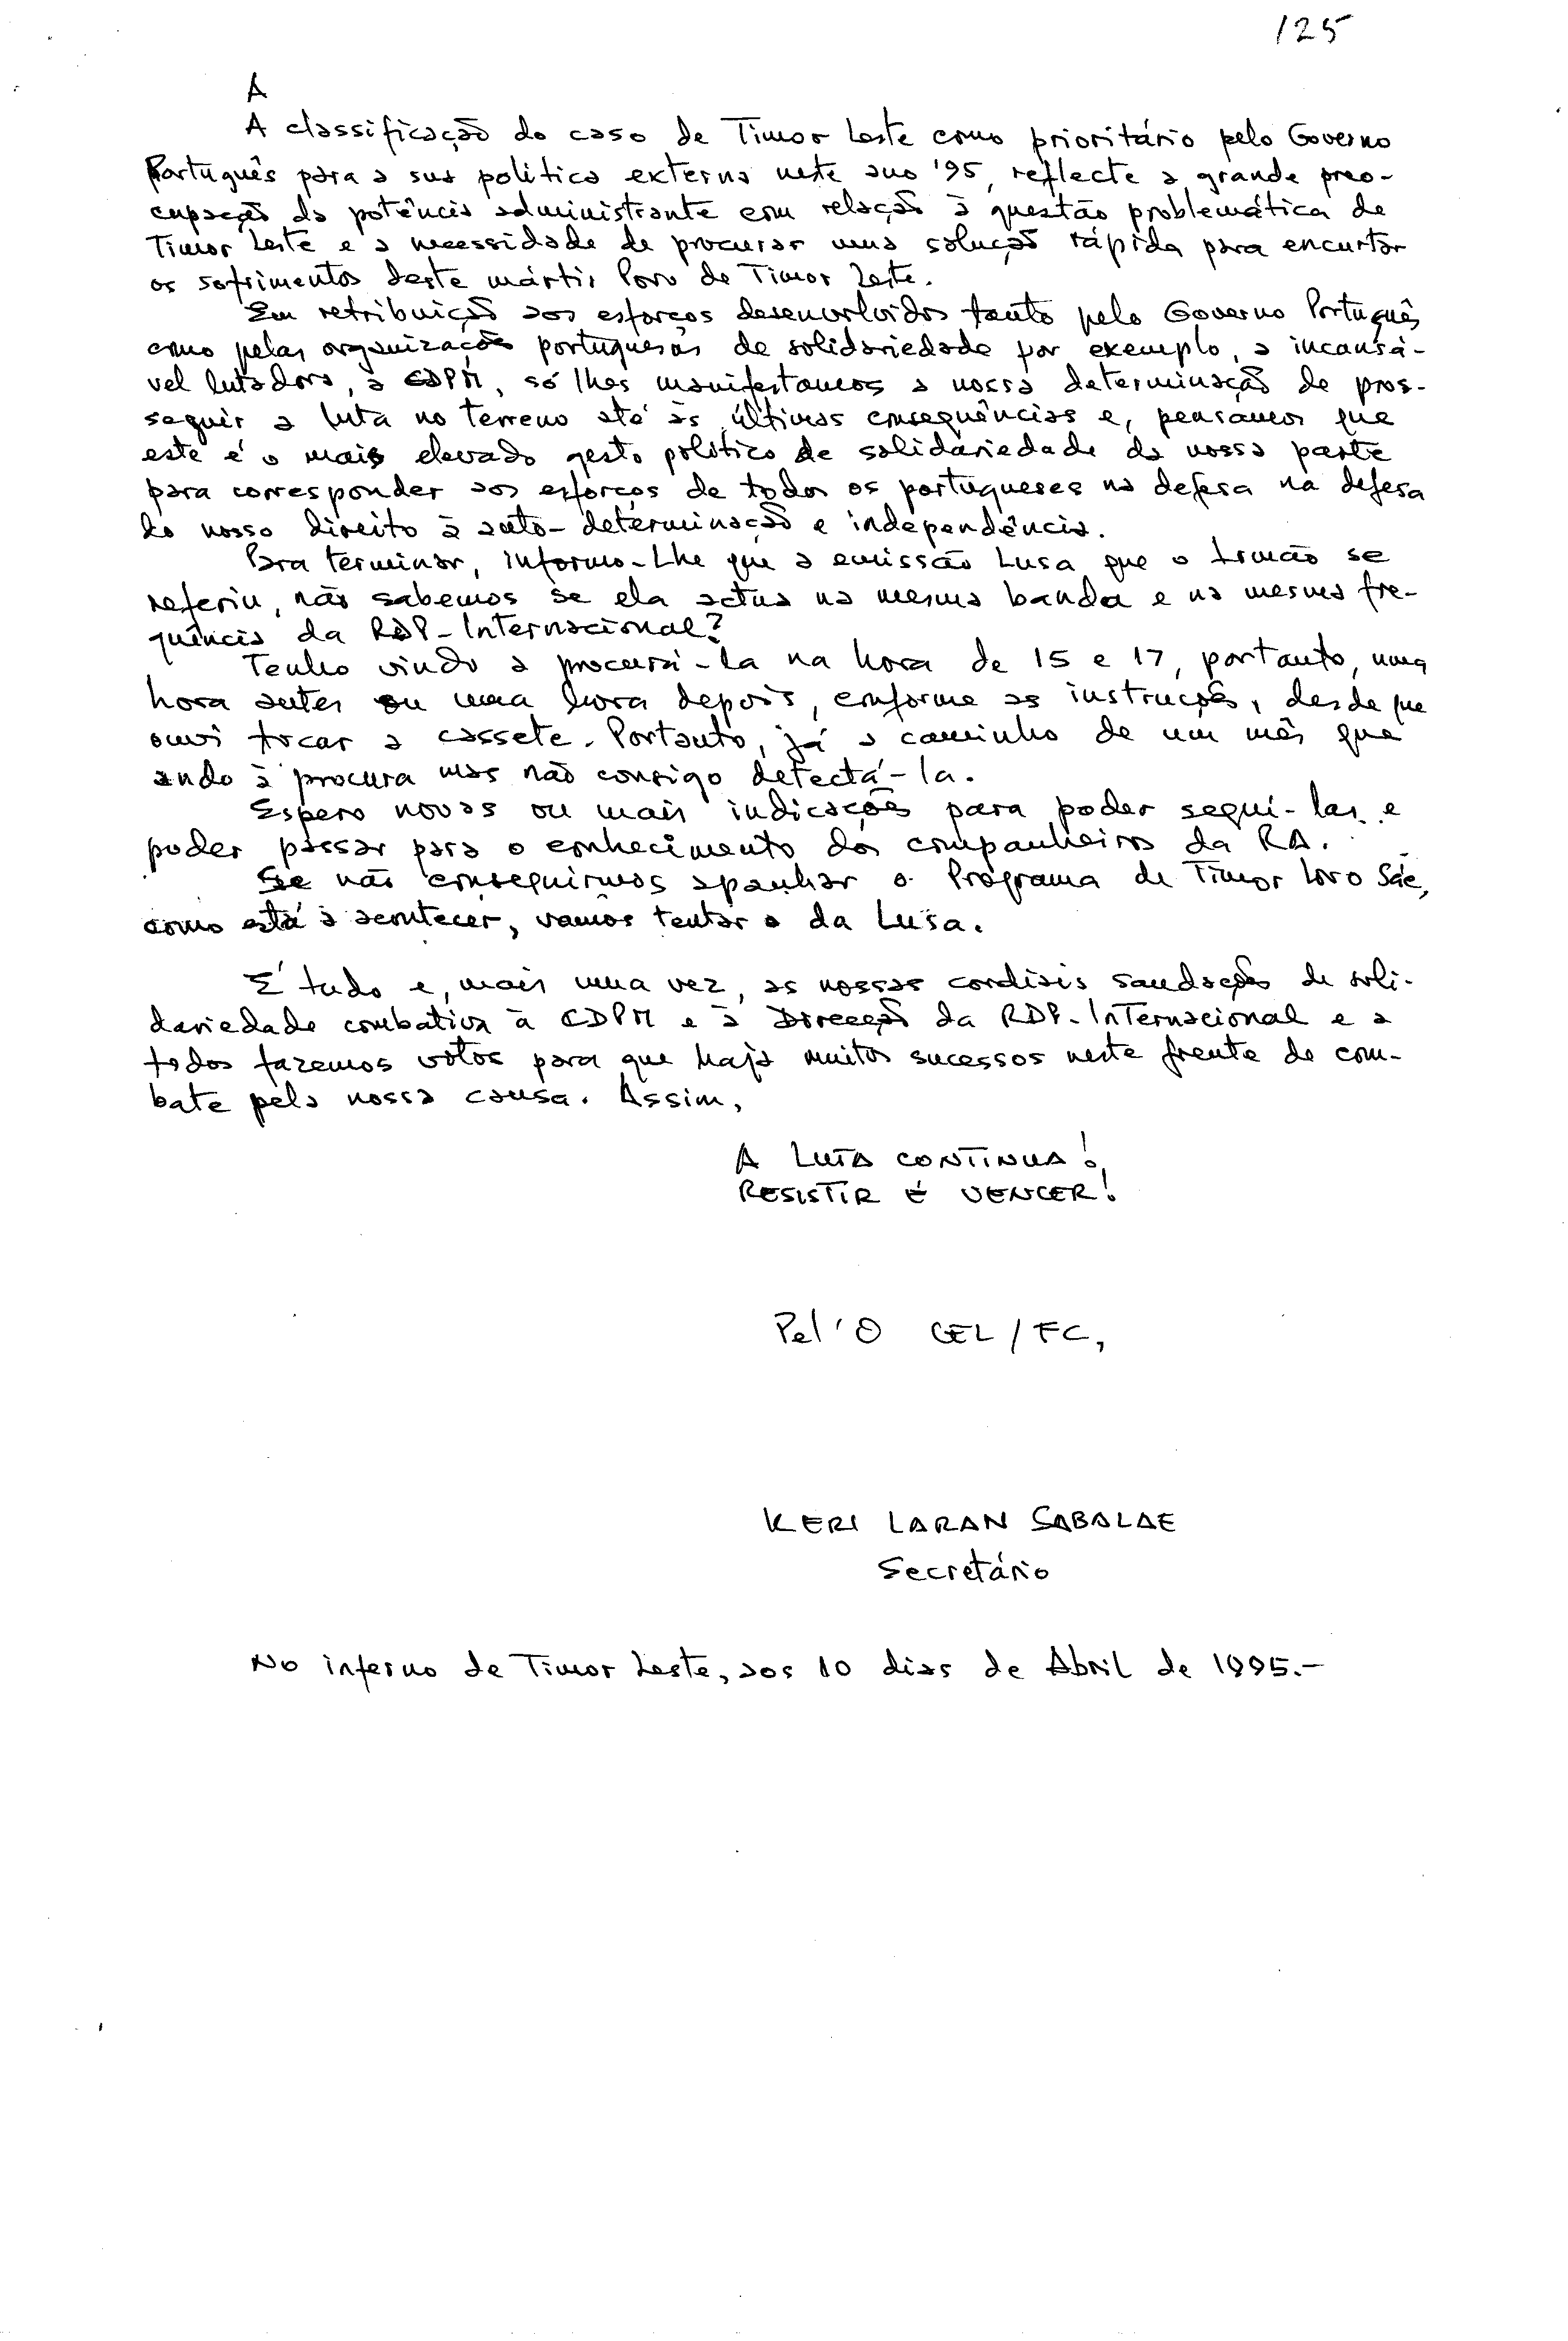 125
A
A classificação do caso de Timor Leste como prioritário pelo Governo
Português para a sua política externa neste ano '95, reflecte a grande preo-
cupação da potência administrante com relação à questão problemática de
Timor Leste e a necessidade de procurar uma solução rápida para encurtar
os sofrimentos deste mártir Povo de Timor Leste.
Em retribuição aos esforços desenvolvidos tanto pelo Governo Português
como pelas organizações portuguesas de solidariedade por exemplo, a incansá-
vel lutadora, a CDPM, só lhes manifestamos a nossa determinação de pros-
seguir a luta no terreno até às últimas consequências e, pensamos que
este é o mais elevado gesto político de solidariedade da nossa parte
para corresponder aos esforços de todos os portugueses na defesa na defesa
do nosso direito à auto-determinação e independência.
Para terminar, informo-Lhe que a emissão Lusa que o Irmão se
referiu, não sabemos se ela actua na mesma banda e na mesma fre-
quência da RDP-Internacional?
Tenho vindo a procurá-la na hora de 15 e 17, portanto, uma
hora antes ou uma hora depois, conforme as instruções, desde que
ouvi tocar a cassete. Portanto, já a caminho de um mês que
ando à procura mas não consigo detectá-la.
Espero novas ou mais indicações para poder segui-las e
poder passar para o conhecimento dos companheiros da RA.
Se não conseguirmos apanhar o Programa de Timor Loro Sae,
como está a acontecer, vamos tentar o da Lusa.
É tudo e, mais uma vez, as nossas cordiais saudações de soli-
dariedade combativa à CDPM e à Direcção da RDP-Internacional e a
todos fazemos votos para que haja muitos sucessos neste frente de com-
bate pela nossa causa. Assim,
A LUTA CONTINUA!
RESISTIR É VENCER!
Pel'O CEL/FC,
KERI LARAN SABALAE
Secretário
No inferno de Timor Leste, aos 10 dias de Abril de 1995.-